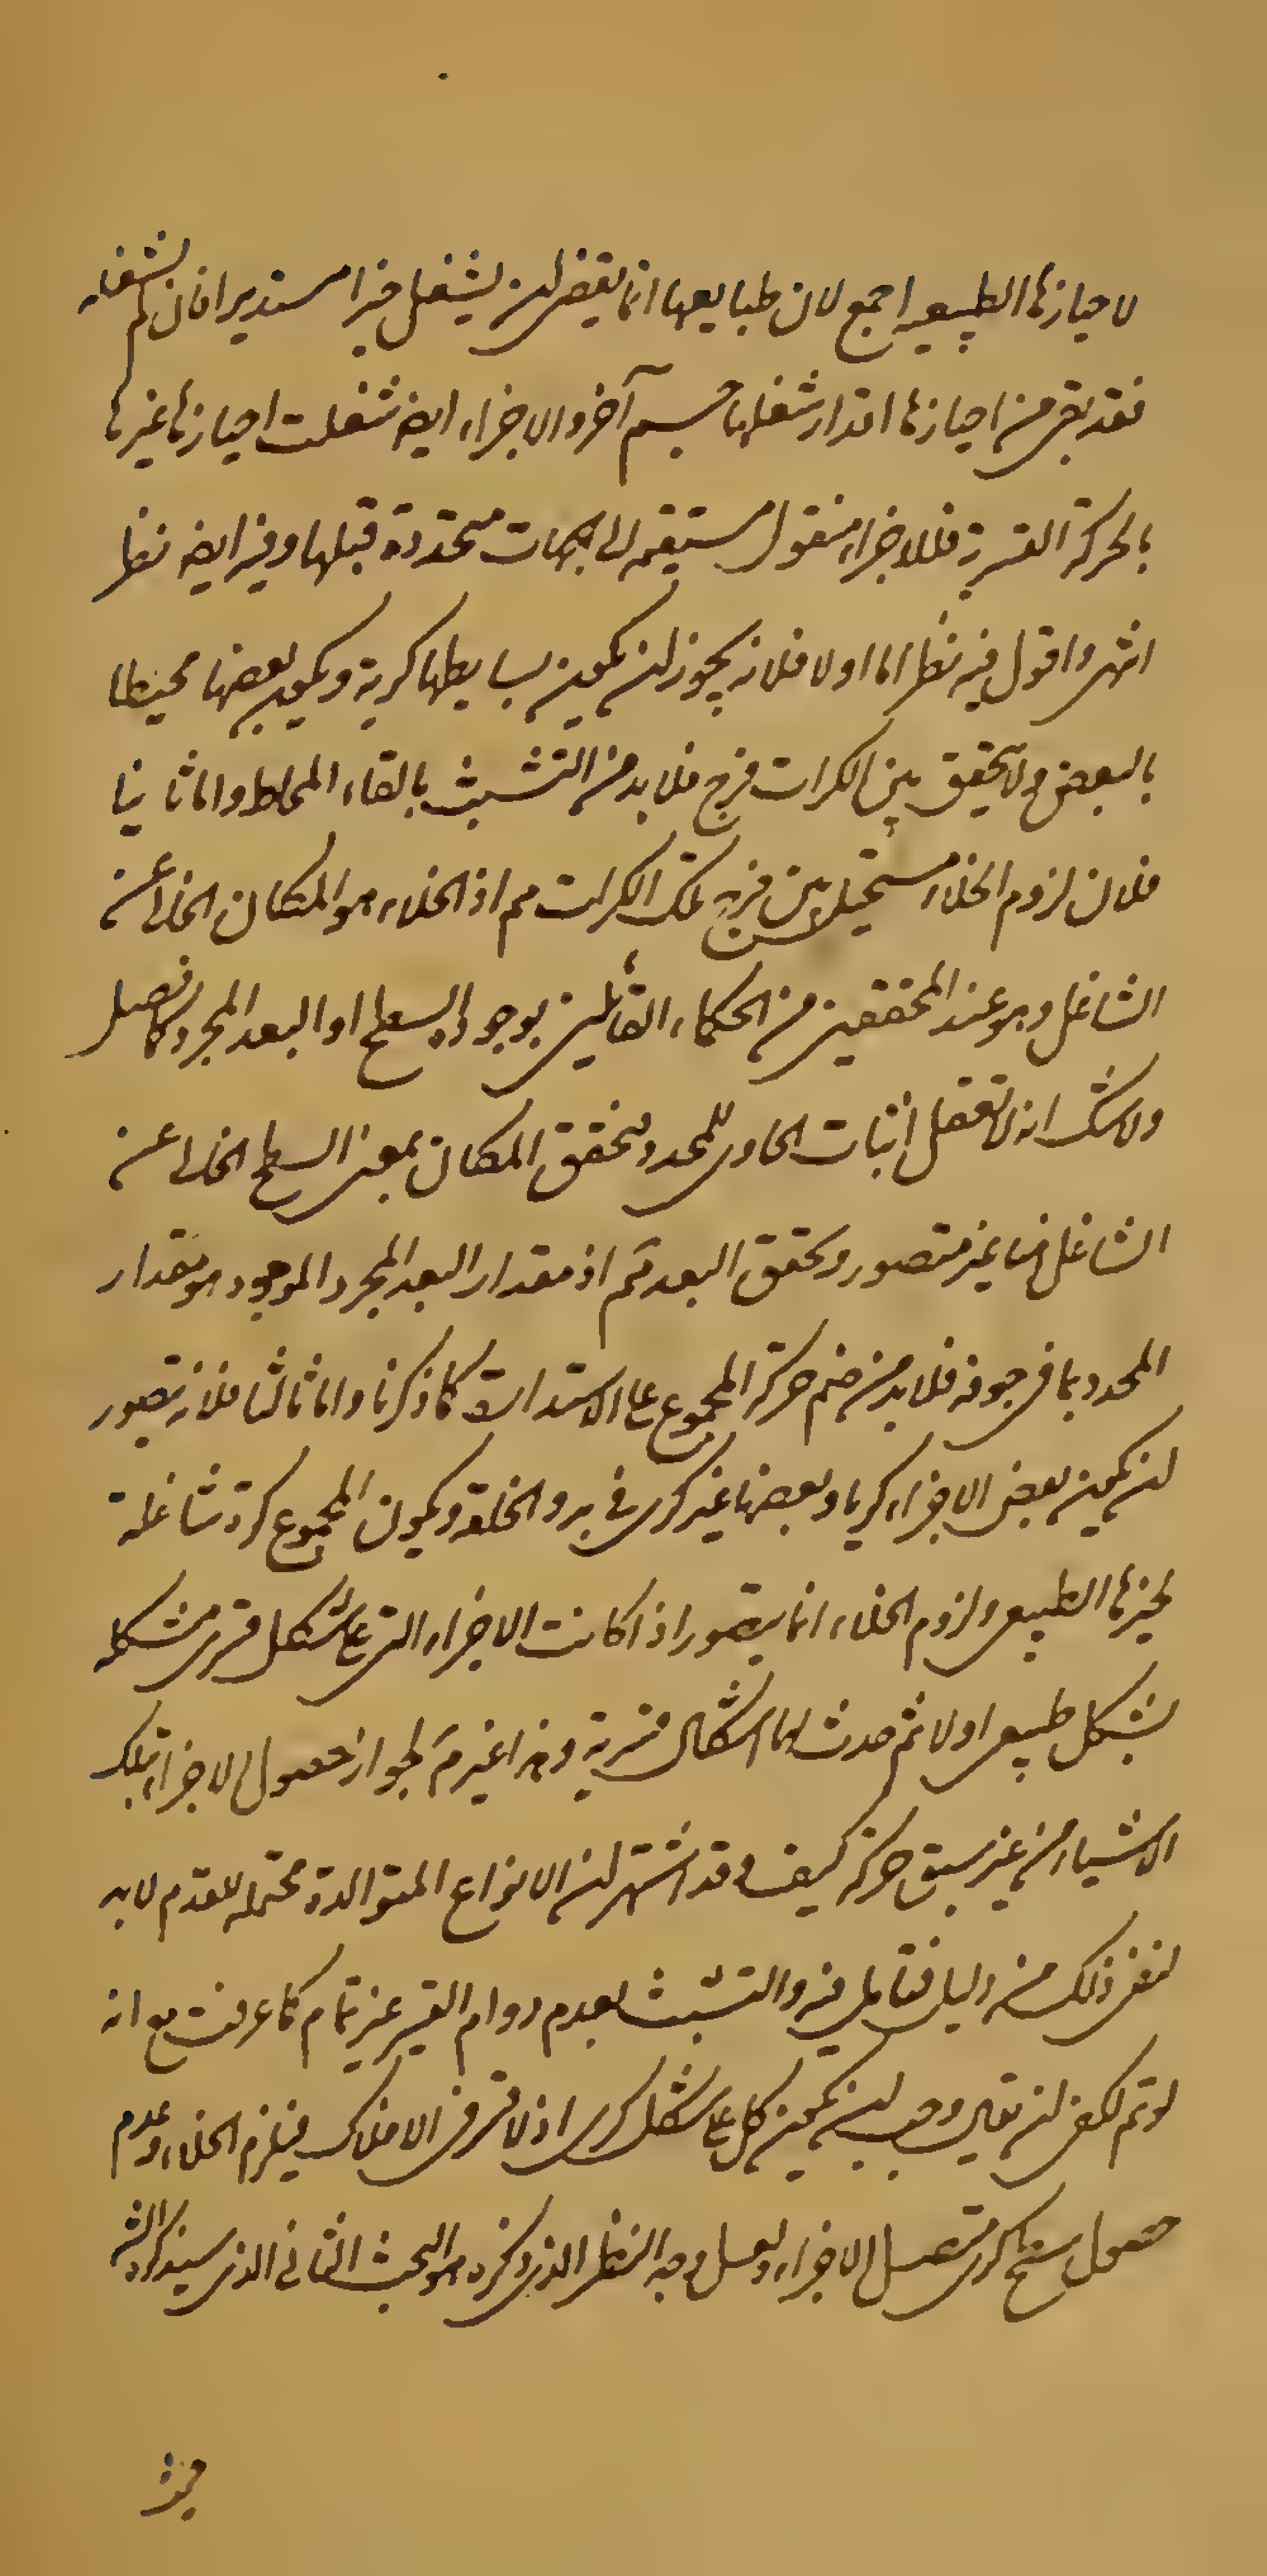 لاحيازها الطبيعيه اجمع لان طبايعها انما يقتضى ان يشغل حيزا مستديرا فان لم يشغله
فقد بقى من احيازها اقدار شغلها جسم آخر والاجزاء ايضا شغلت احياز غيرها
بالحركة القسرية فللاجزاء منقول مستقيمه الى جهات متحددة قبلها وفيه ايضا نظر
انتهى واقول فيه نظر اما اولا فلانه يجوز ان يكون بسايطها كرية ويكون بعضها محيطا
بالبعض ولا يتحقق بين الكرات فرج فلا بد من التشبث بالقاء المحاط واما ثانيا
فلان لزوم الخلاء مستحيل بين فرج تلك الكرات مم اذ الخلاء هو المكان الخالى عن
الشاغل وهو عند المحققين من الحكماء القائلين بوجود السطح او البعد المجرد كما فصل
ولا شك انه لا تعقل اثبات الحاوى للمحدد فتحقق المكان بمعنى السطح الخالى عن
الشاغل هنا غير متصور وتحقق البعد ثم اذ مقدار البعد المجرد الموجود هو مقدار
المحدد بما فى جوفه فلا بد من ضم حركة المجموع على الاستدارة كما ذكرنا واما ثالثا فلانه يتصور
ان يكون بعض الاجزاء كريا وبعضها غير كرى فى بدو الخلقة ويكون المجموع كرة شاغلة
لحيزها الطبيعى ولزوم الخلاء انما يتصور اذا كانت الاجزاء التى على شكل قسرى متشكله
بشكل طبيعى اولا ثم حدث لها اشكال قسرية وهذا غير مم لجواز حصول الاجزاء بتلك
الاشياء من غير سبق حركة كيف وقد اشتهر ان الانواع المتوالدة محتمله للقدم لا بد
لنفى ذلك من دليل فتامل فيه والتشبث بعدم دوام القسر غير تمام كما عرفت مع انه
لو تم لكفى ان يقال وجب ان يكون كل على شكل كرى اذ لا قسر فى الافلاك فيلزم الخلاء وعدم
حصول سطح كرى متصل الاجزاء ولعل وجه النظر الذى ذكره هو البحث الثانى الذى سيذكره الش